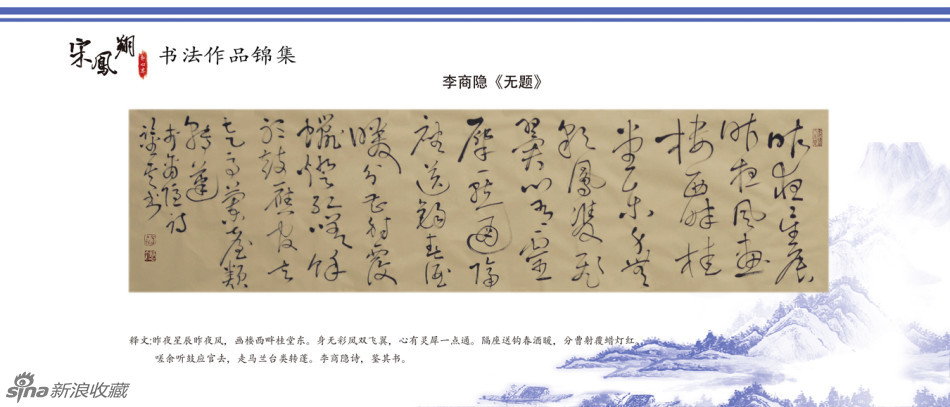 宋鳳翔 书法作品锦集
李商隐《无题》
昨夜星辰
昨夜风画
楼西畔桂
堂东身无
彩鳳雙飛
翼心有灵
犀一点通隔
座送钩春酒
暖分曹射覆
蠟燈红嗟余
听鼓應官去
走马兰台類
转蓬
李商隐诗
释文:昨夜星辰昨夜风，画楼西畔桂堂东。身无彩凤双飞翼，心有灵犀一点通。隔座送钩春酒暖，分曹射覆蜡灯红。
嗟余听鼓应官去，走马兰台类转蓬。李商隐诗，鉴其书。
sina新浪收藏